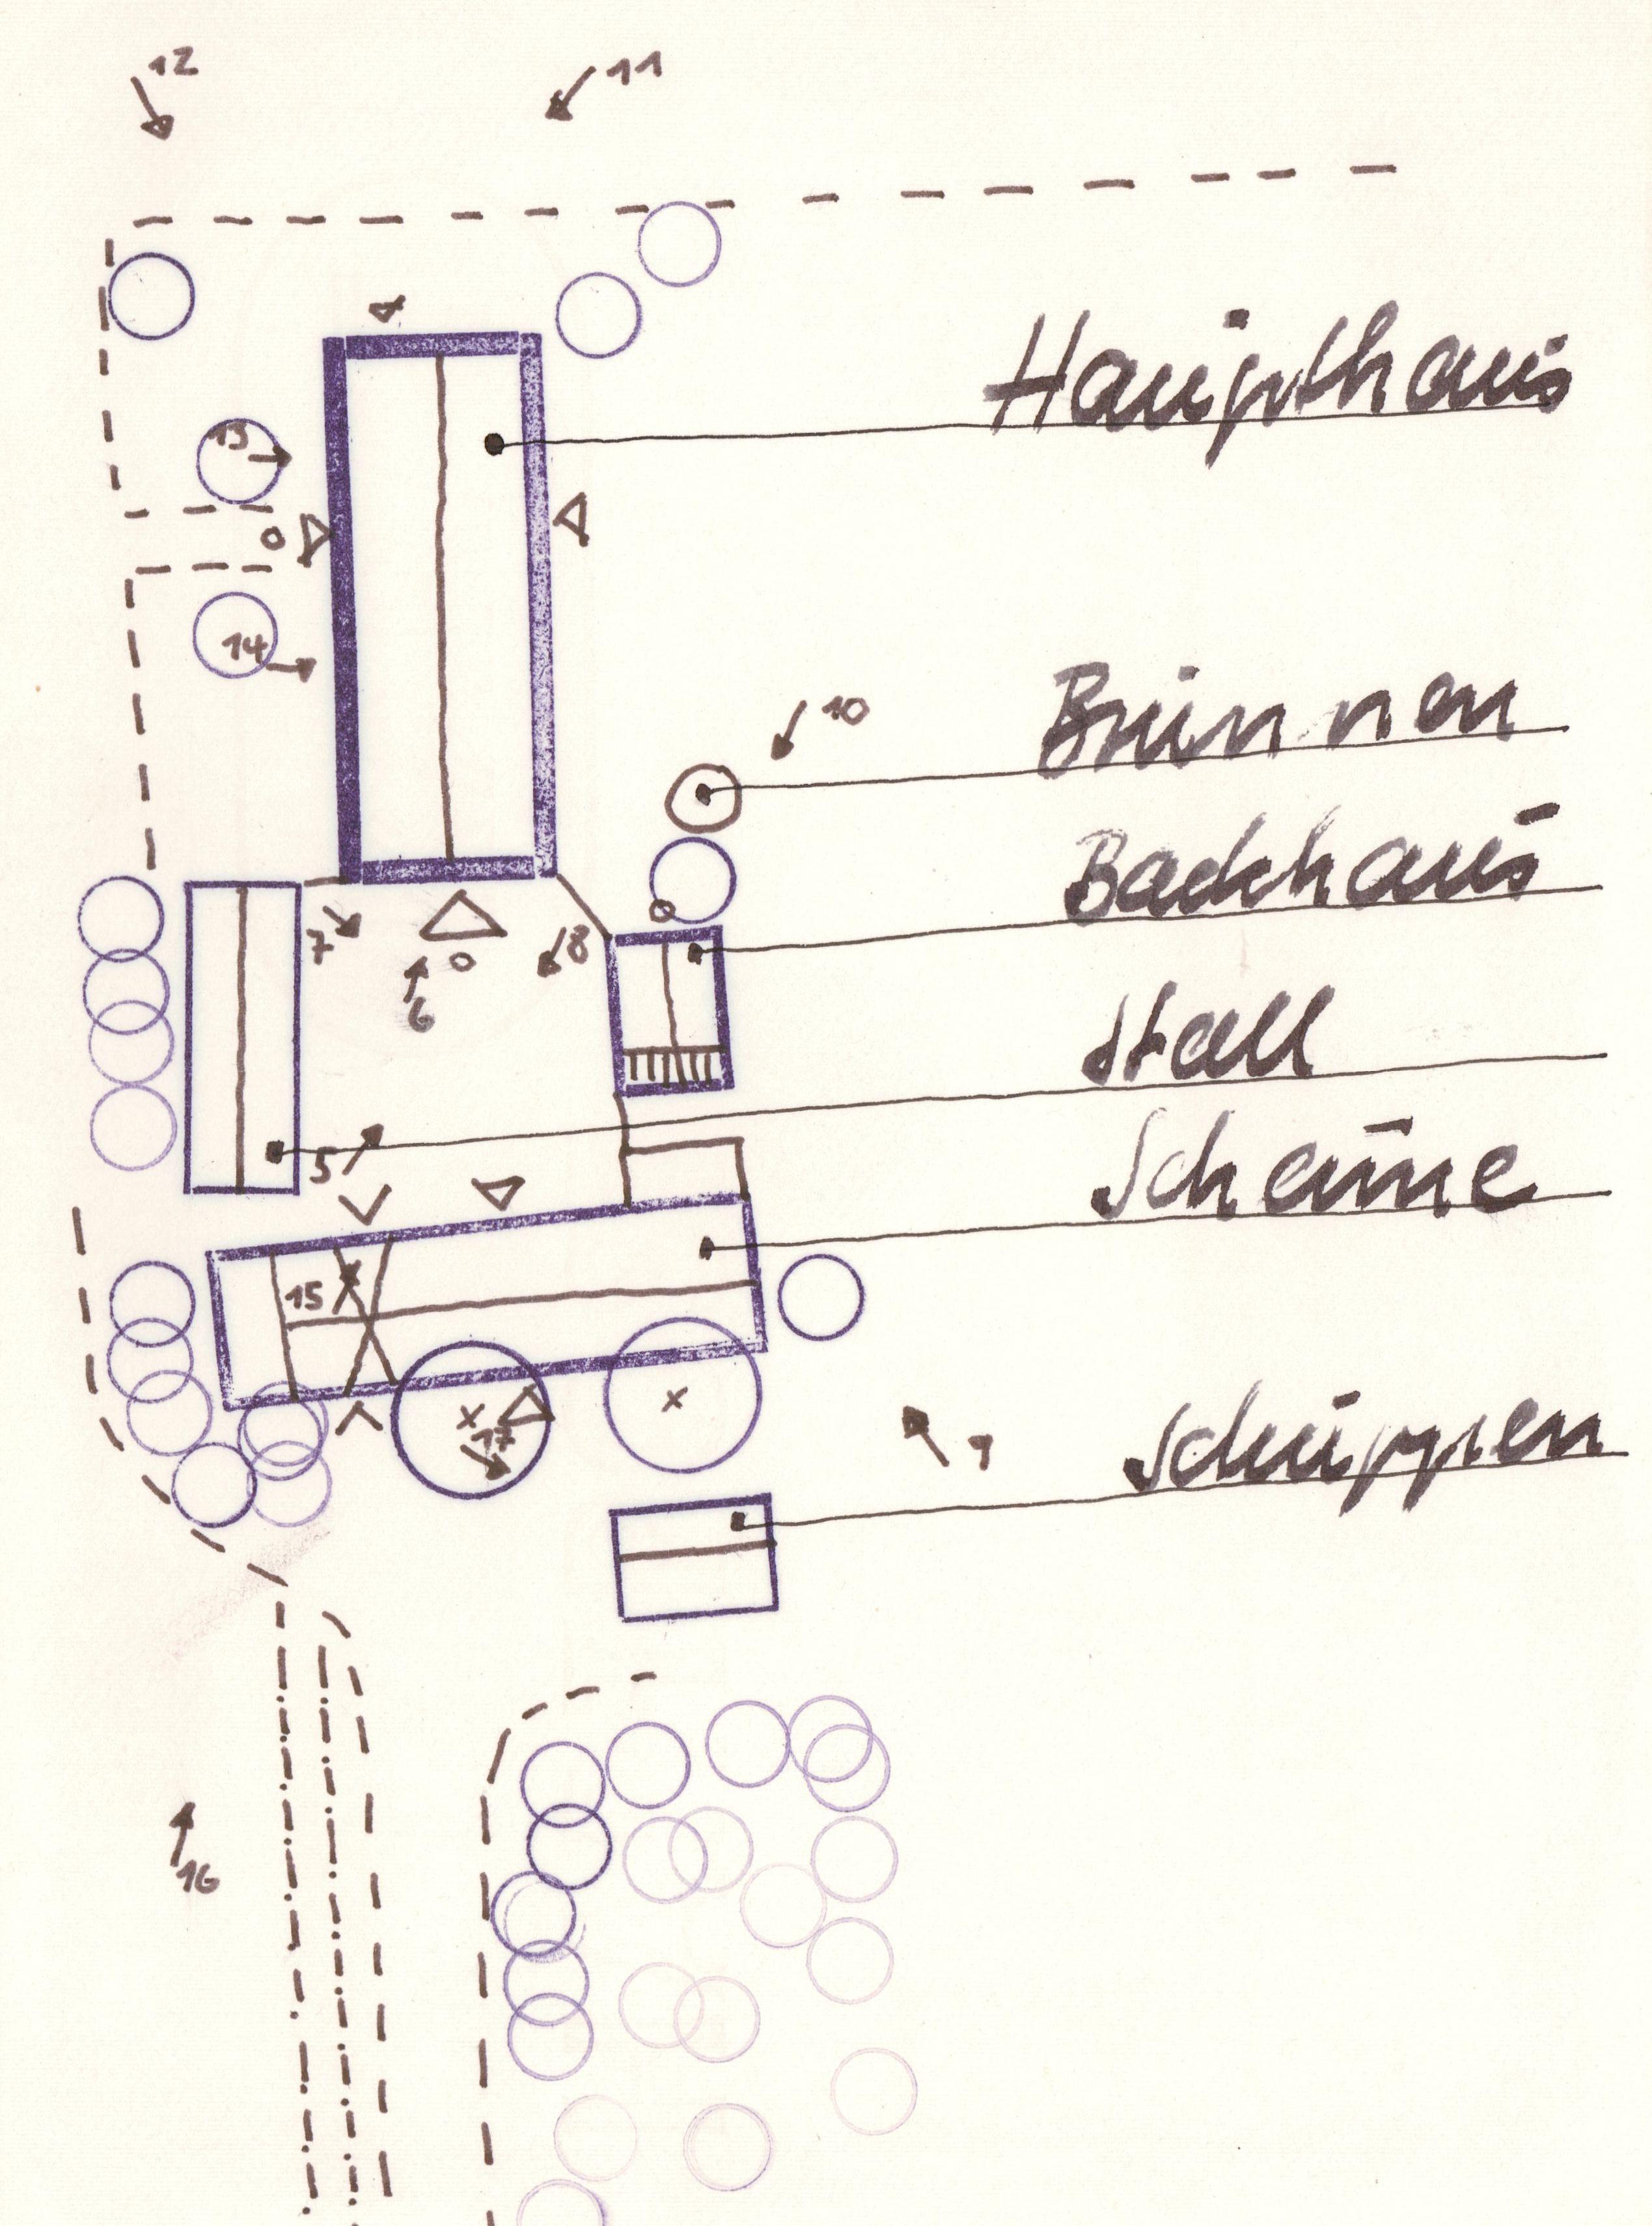 12
11
Haupthaus
13
14
10
Brunnen
Backhaus
7
8
6
Stall
5
Scheune
15
17
9
Schuppen
16